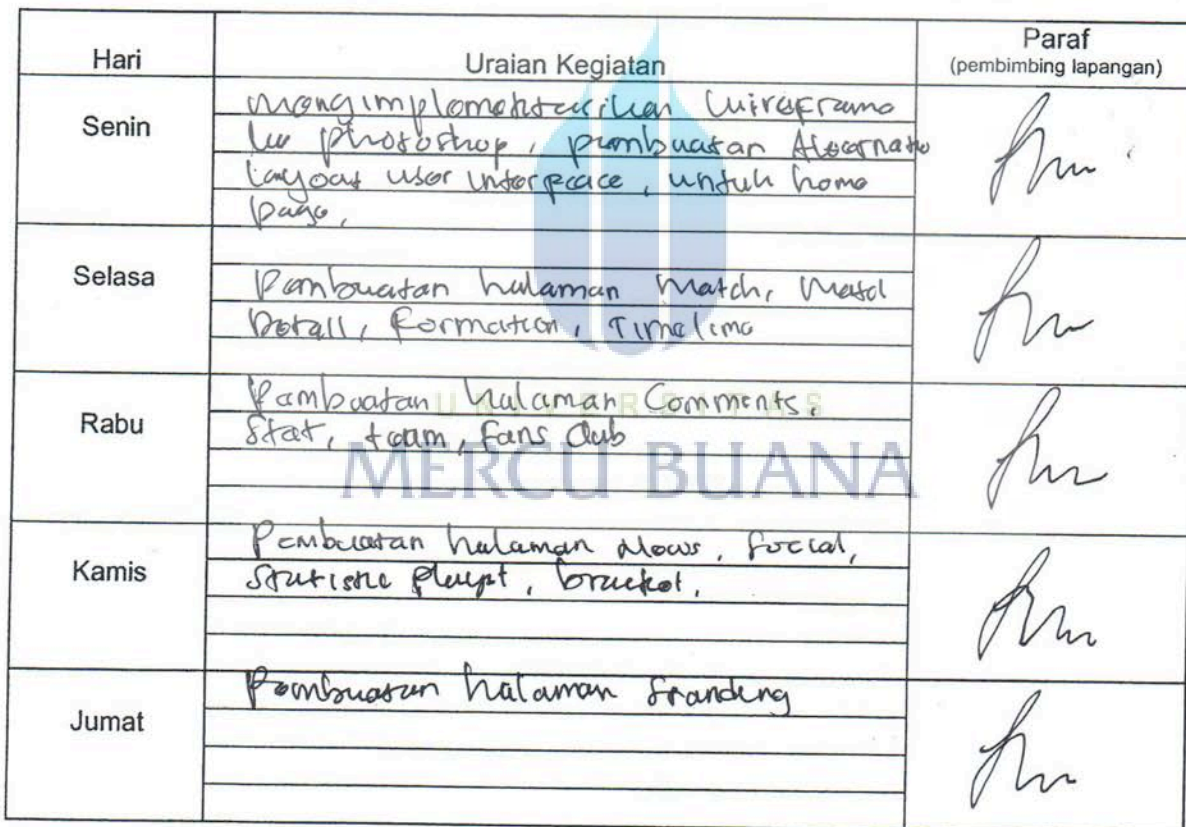 Hari Uraian Kegiatan Paraf
(pembimbing lapangan)
Senin
mengimplementasikan Wireframe
ke photoshop, pembuatan Alternate
layout user interface, untuk home
page,
Selasa
Pembuatan halaman Match, Match
Detail, Formation, Timeline
Rabu
Pembuatan halaman Comments,
Stat, team, Fans Club
UNIVERSITAS
MERCU BUANA
Kamis
Pembuatan halaman News, Social,
Statistic, bracket,
Jumat
Pembuatan halaman Standing